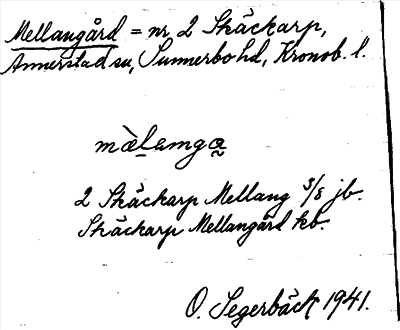 Mellangård = nr 2 Skäckarp,
Annerstad sn, Sunnerbo hd, Kronob. l.
mæ̀lamgа
2 Skäckarp Mellang 3/8 jb.
Skäckarp Mellangård kb.
O. Segerbäck 1941.